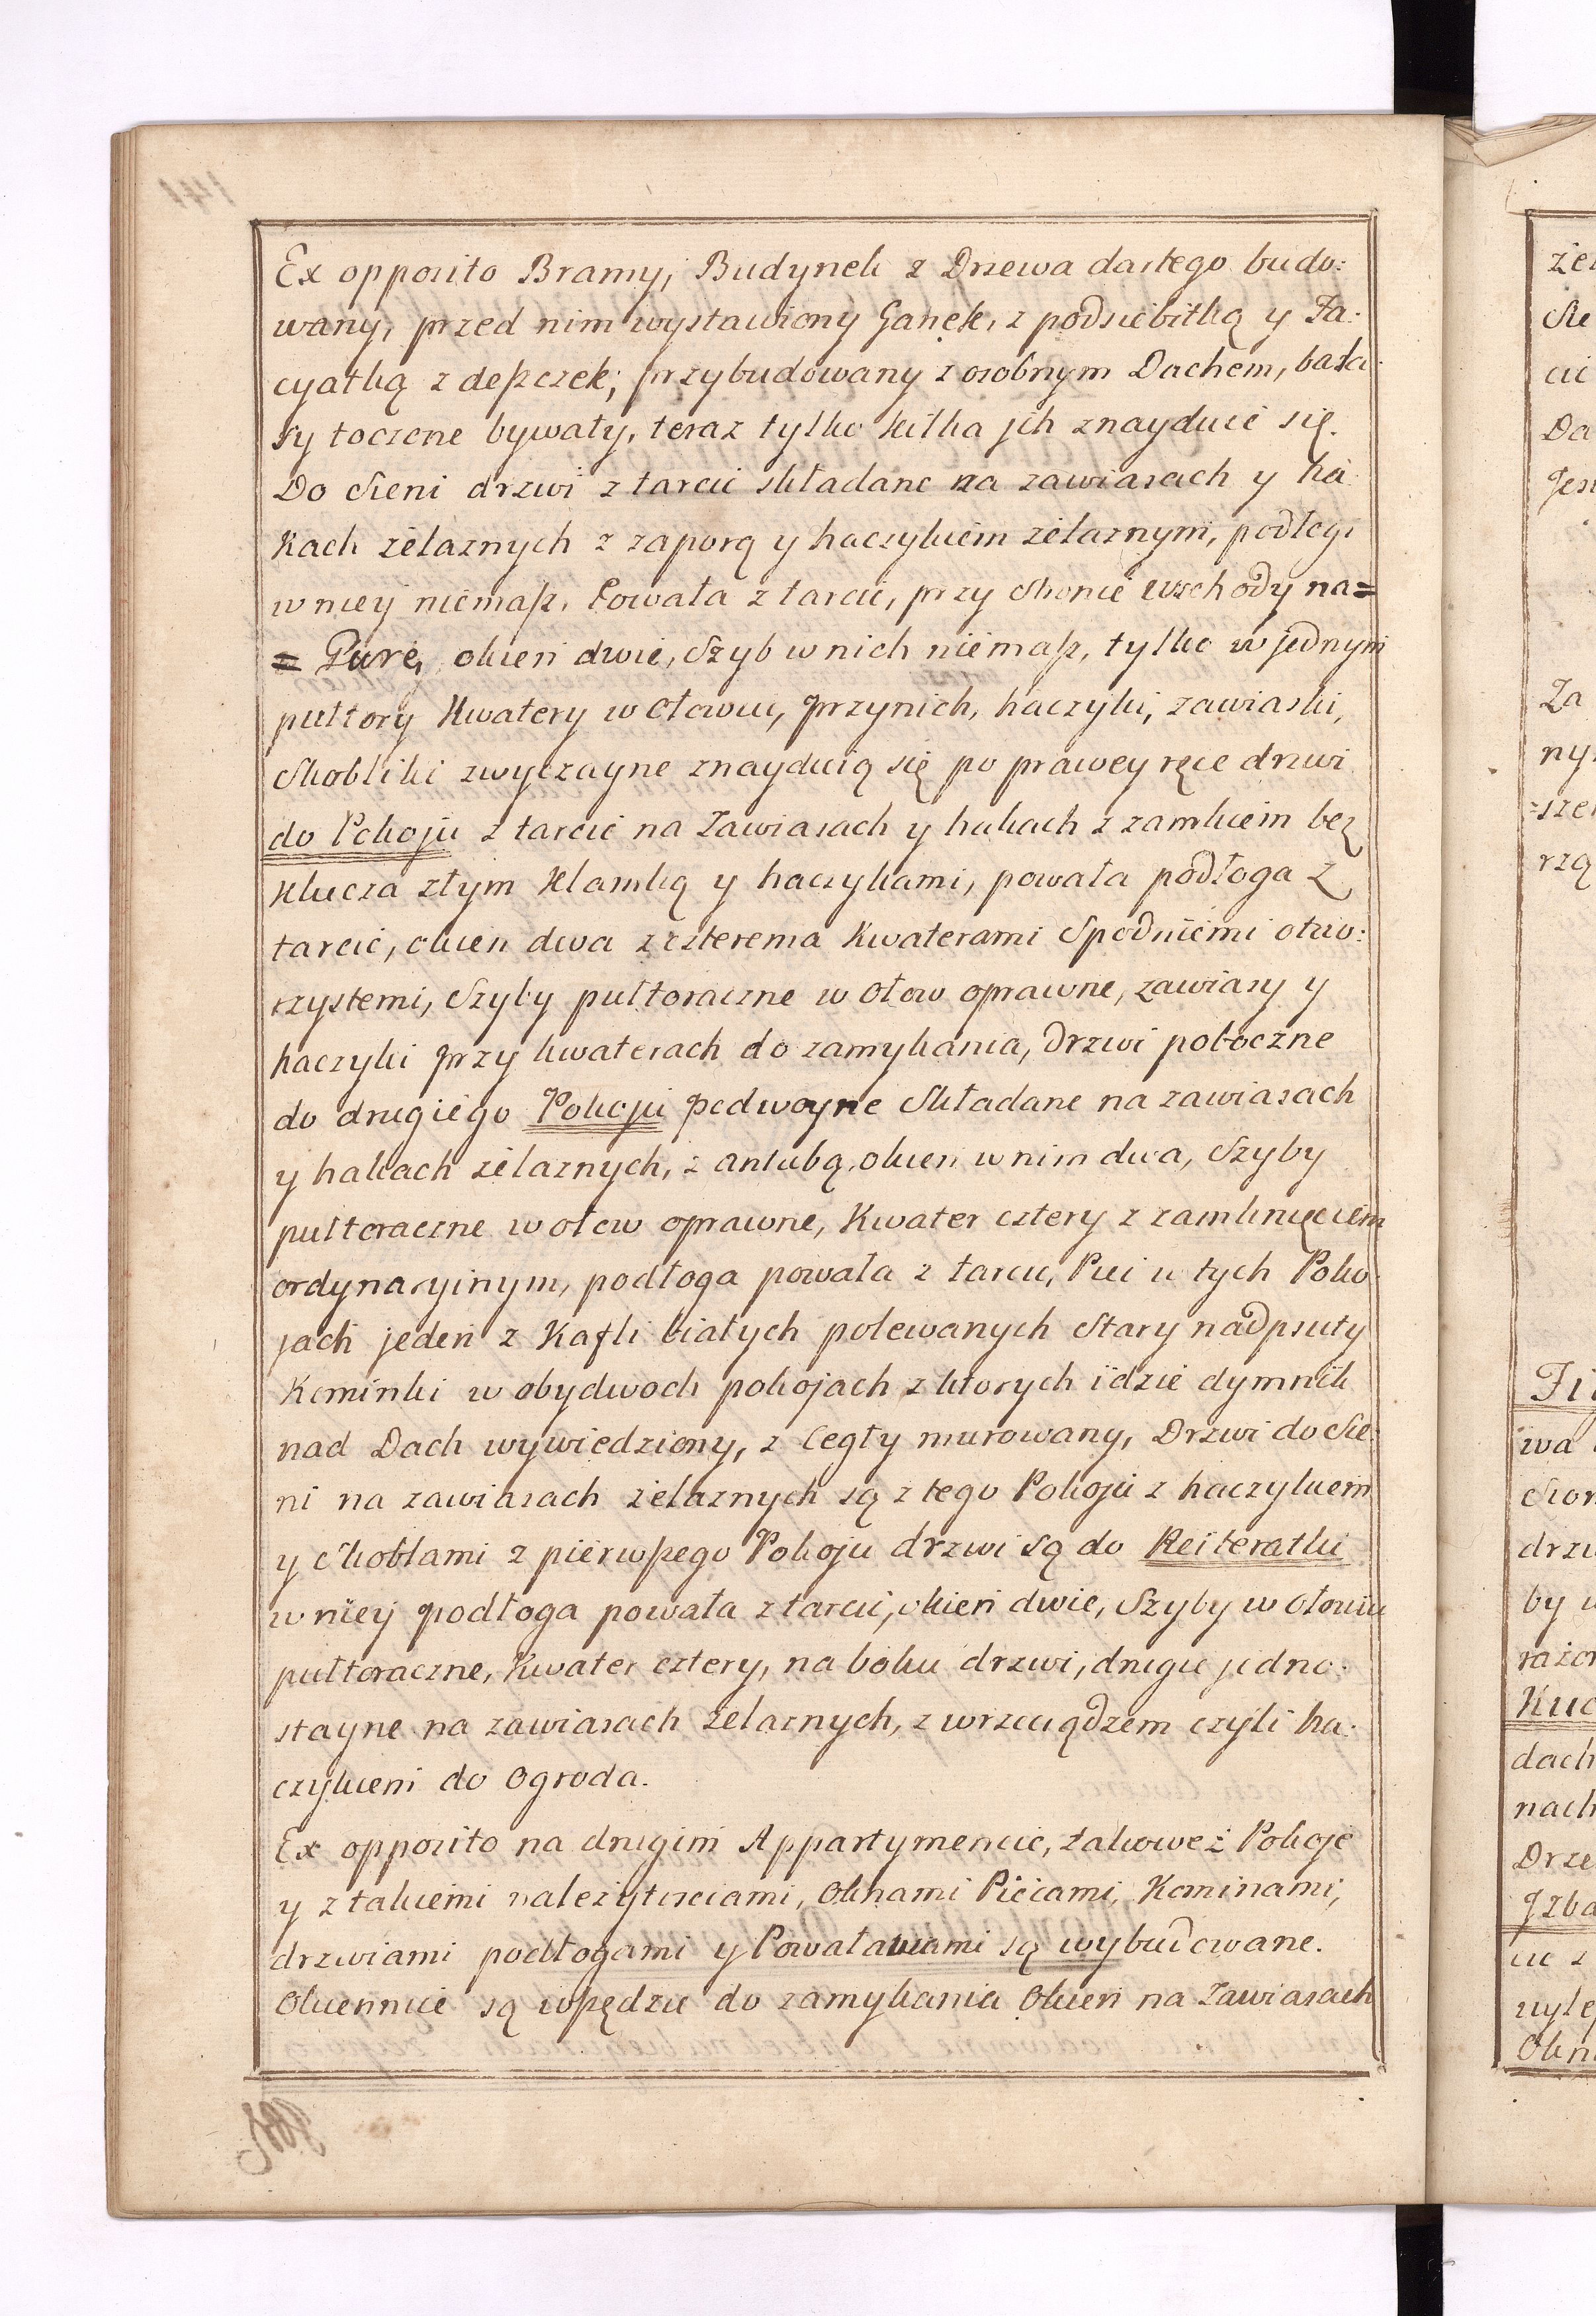 Ex opposito Bramy, Budynek z Drzewa dartego budo:
wany, przed nim wystawiony Ganek, z podsiebitką y Fa:
cyatką z deszczek, przybudowany z osobnym Dachem, bala:
sy toczone bywały, teraz tylko kilka jch znayduie się.
Do Sieni drzwi z tarcic składane na zawiasach y ha:
kach żelaznych z zaporą y haczykiem żelaznym, podłogi
w niey niemasz, Powała z tarcic, przy stronie wschody na=
= Gurę, okien dwie, Szyb w nich niemasz, tylko w jednym
pułtory Kwatery w Ołowiu, przynich, haczyki, zawiaski,
Skobliki zwyczayne znayduią się po prawey ręce drzwi
do Pokoju z tarcic na Zawiasach y hakach z zamkiem bez
Klucza złym Klamką y haczykami, powała podłoga z
tarcic, okien dwa z czterema Kwaterami Spodniemi otwo:
rzystemi, Szyby pułtoraczne w Ołow oprawne, zawiasy y
haczyki przy kwaterach do zamykania, Drzwi poboczne
do drugiego Pokoju podwoyne Składane na zawiasach
y hakach żelaznych, z antabą, okien w nim dwa, Szyby
pułtoraczne w ołow oprawne, Kwater cztery z zamknięciem
ordynaryinym, podłoga powała z tarcic, Piec w tych Poko:
jach jeden z Kafli białych polewanych Stary nadpsuty
Kominki w obydwoch pokojach z ktorych idzie dymnik
nad Dach wywiedziony, z Cegły murowany, Drzwi do Sie:
ni na zawiasach żelaznych są z tego Pokoju z haczykiem
y Skoblami z pierwszego Pokoju drzwi są do Reiteratki
w niey podłoga powała z tarcic, okien dwie, Szyby w Ołowiu
pułtoraczne, Kwater cztery, na boku drzwi, drugie jedno:
stayne na zawiasach żelaznych, z wrzeciądzem czyli ha:
czykiem do Ogroda.
Ex opposito na drugim Appartymencie, takoweż Pokoje
y z takiemi należytosciami, Oknami Piecami, Kominami,
drzwiami podłogami y Powałami są wybudowane.
Okiennice są wszędzie do zamykania Okien na Zawiasach